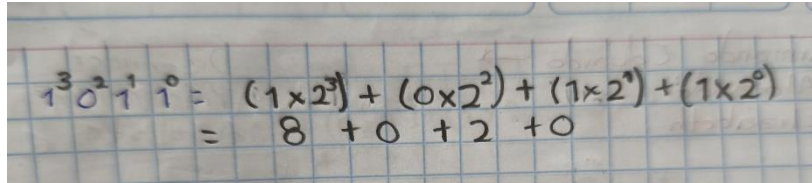 1³0²1¹1⁰ = (1×2³) + (0×2²) + (1×2¹) + (1×2⁰)
= 8 + 0 + 2 + 0